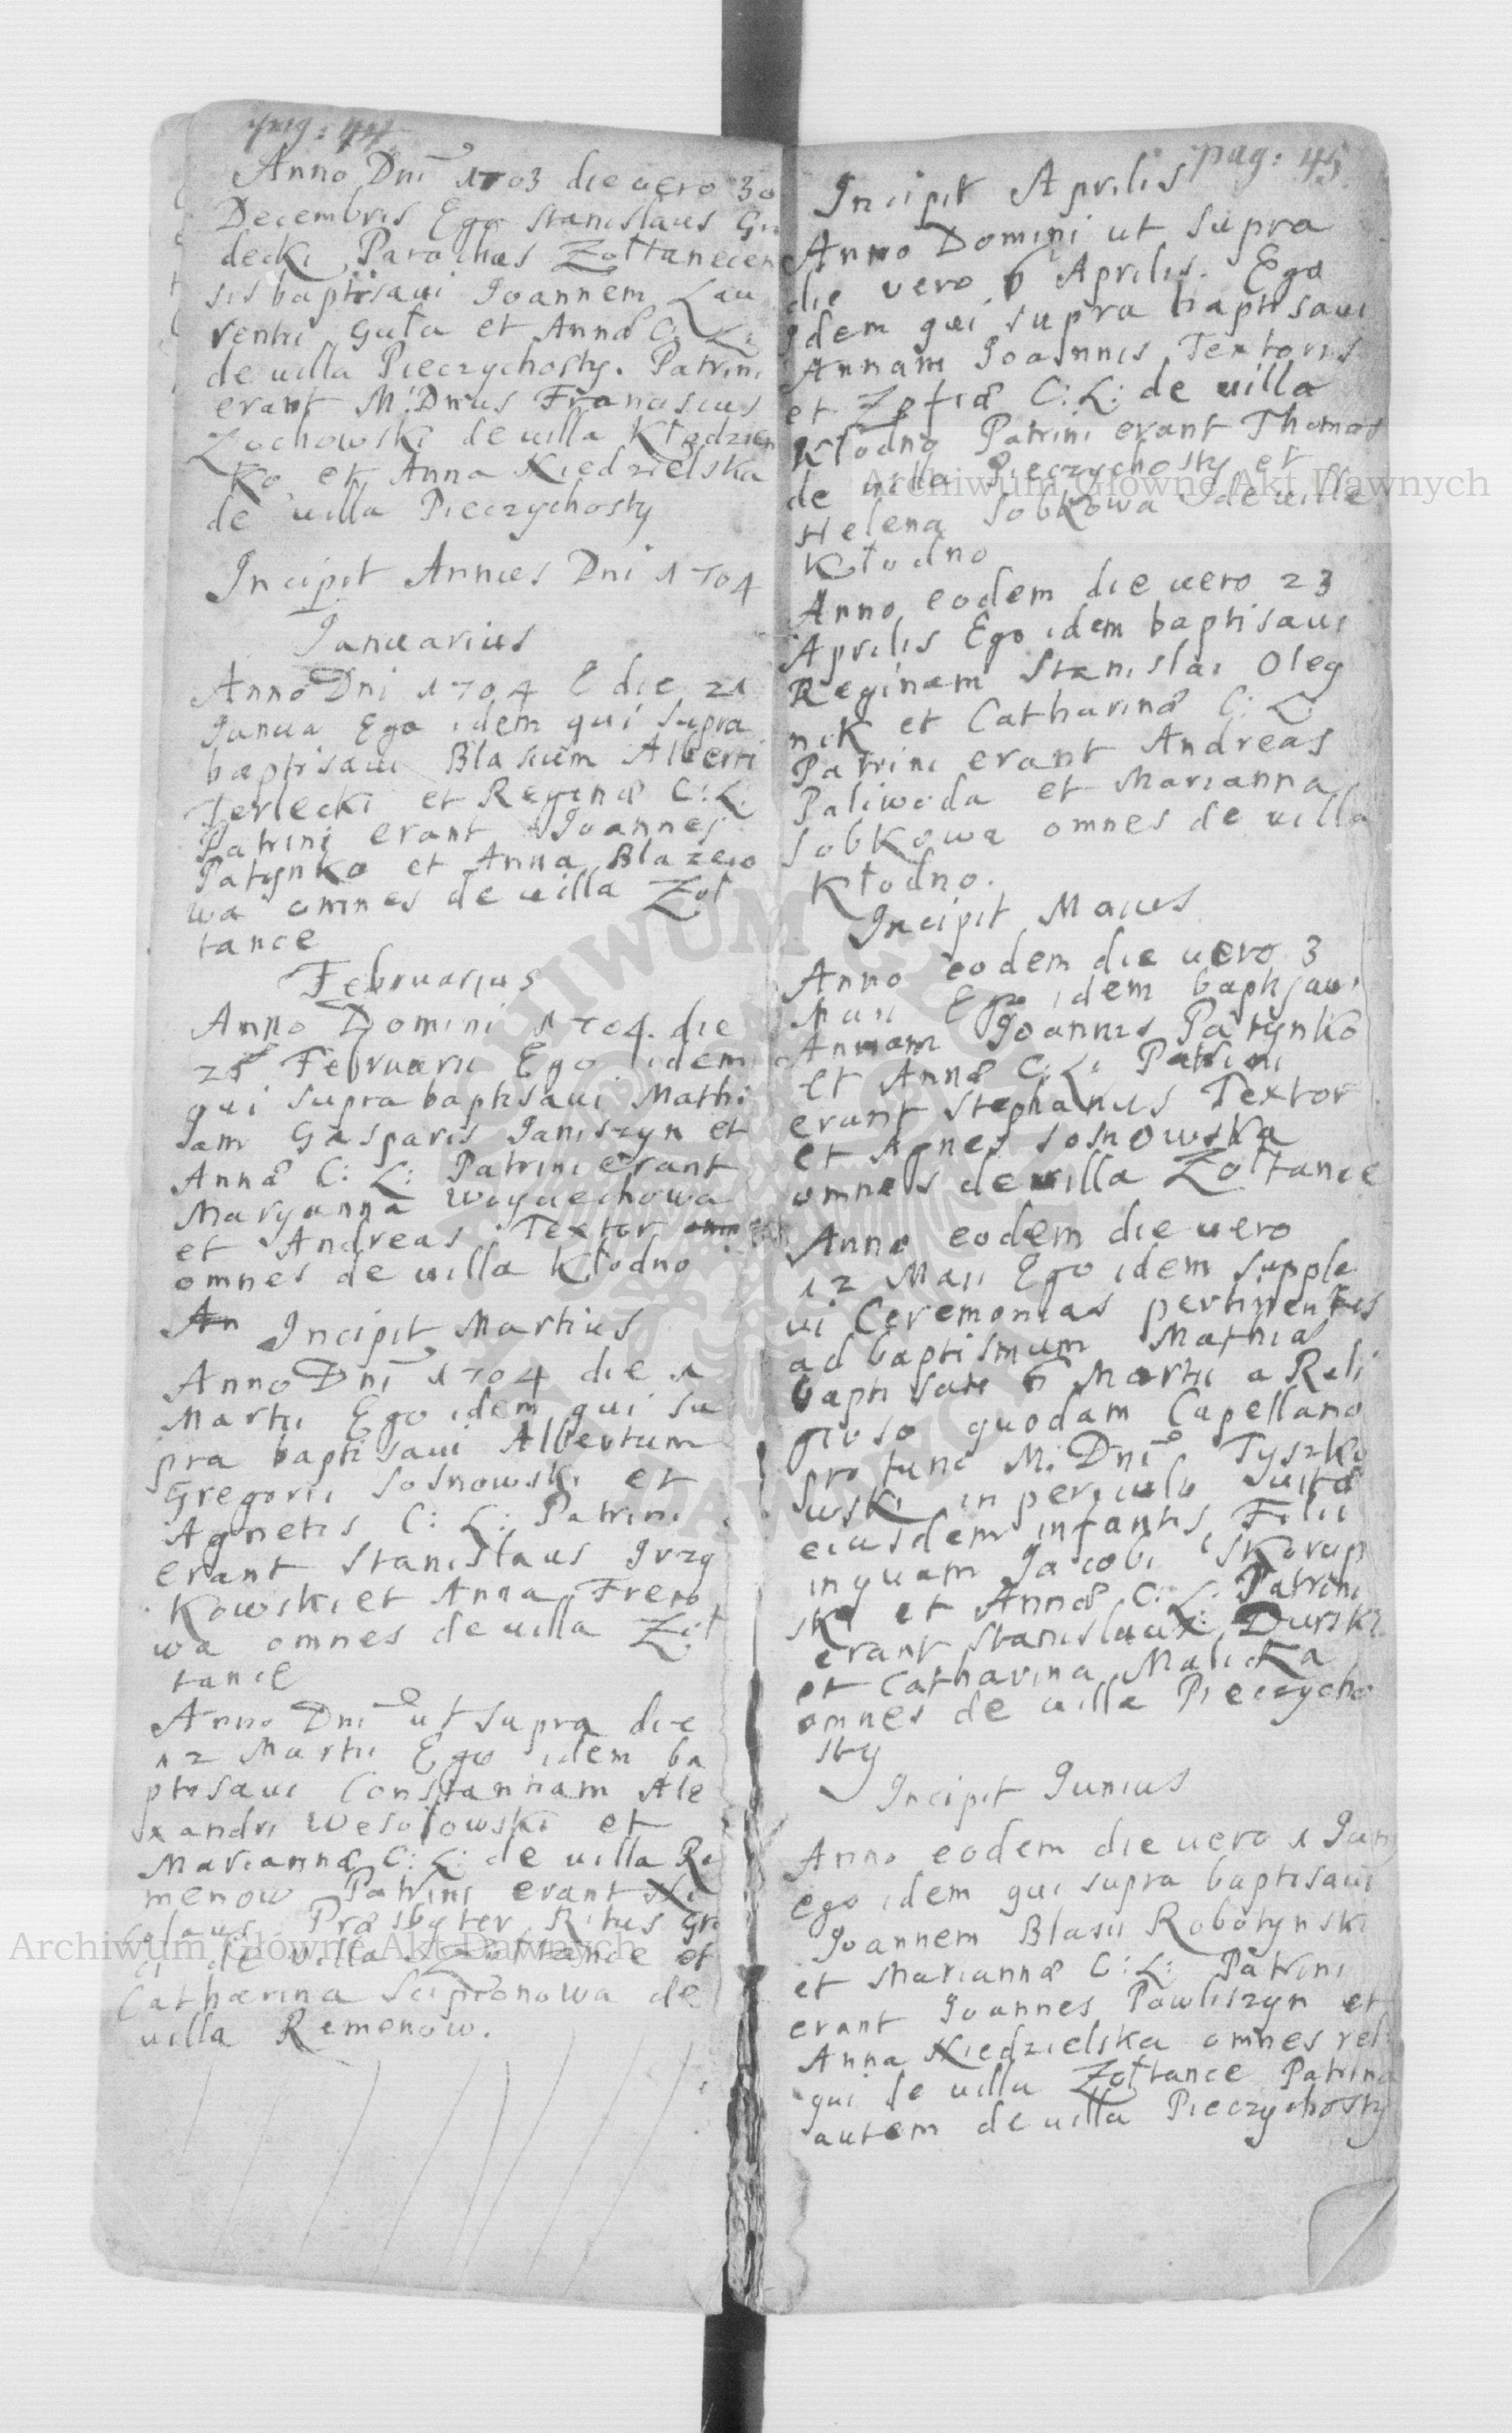 pag: 44
Anno Dni 1703 die uero 30
Decembris Ego Stanislaus Gu
decki Parochus Zołtanecen
sis baptisaui Joannem Lau
rentii Guła et Annæ C: L:
de uilla Pieczychosty. Patrini
erant M: Dnus Franciscus
Zochowski de uilla Kłodzien
ko et Anna Niedzielska
de uilla Pieczychosty
Incipit Annus Dni 1704
Januarius
Anno Dni 1704 die 21
Janua Ego idem qui supra
baptisaui Blasium Alberti
Terlecki et Reginæ C: L:
Patrini erant Joannes
Patynko et Anna Blazeio
wa omnes de uilla Zoł
tance
Februarius
Anno Domini 1704. die
25 Februarii Ego idem
qui supra baptisaui Mathi
Jam Gasparis Janiszyn et
Annæ C: L: Patrini erant
Maryanna Woyciechowa
et Andreas Textor
omnes de uilla Kłodno
An Incipit Martius
Anno Dni 1704 die 1
Martii Ego idem qui su
pra baptisaui Albertum
Gregorii Sosnowski et
Agnetis C: L: Patrini
erant Stanislaus Grzy
kowski et Anna Frero
wa omnes de uilla Zoł
tance
Anno Dni ut supra die
12 Martii Ego idem ba
ptisaui Constantiam Ale
xandri Wesołowski et
Mariannæ C: L: de uilla Re
menow Patrini erant Ni
colaus Præsbyter Ritus Græ
ci de uilla Zołtance et
Catharina Scipionowa de
uilla Remenow.
pag: 45
Incipit Aprilis
Anno Domini ut supra
die uero 6 Aprilis. Ego
Idem qui supra baptisaui
Annam Joannis Textoris
et Zofiæ C: L: de uilla
Kłodno Patrini erant Thomas
de uilla Pieczychosty et
Helena Sobkowa de uilla
Kłodno
Anno eodem die uero 23
Aprilis Ego idem baptisaui
Reginam Stanislai Oleg
nik et Catharinæ C: L.
Patrini erant Andreas
Paliwoda et Marianna
Sobkowa omnes de uilla
Kłodno.
Incipit Maius
Anno eodem die uero 3
Maii Ego idem baptisaui
Annam Joannis Patynko
et Annæ C: L: Patrini
erant Stephanus Textor
et Agnes Sosnowska
omnes de uilla Zołtance
Anno eodem die uero
12 Maii Ego idem supple
ui Ceremonias pertinentes
ad baptismum Mathiæ
baptisati 6 Martii a Reli
gioso quodam Capellano
pro tunc M: Dni Tyszko
wski in periculo uitæ
eiusdem infantis, Filii
inquam Jacobi Skorup
ski et Annæ C: L: Patrini
erant Stanislaus Durski
et Catharina Malicka
omnes de uilla Pieczycho
sty
Incipit Junius
Anno eodem die uero 1 Juny
ego idem qui supra baptisaui
Joannem Blasii Robotynski
et Mariannæ C: L: Patrini
erant Joannes Pawliszyn et
Anna Niedzielska omnes reli
qui de uilla Zołtance Patrina
autem de uilla Pieczychosty
Archiwum Główne Akt Dawnych
Archiwum Główne Akt Dawnych